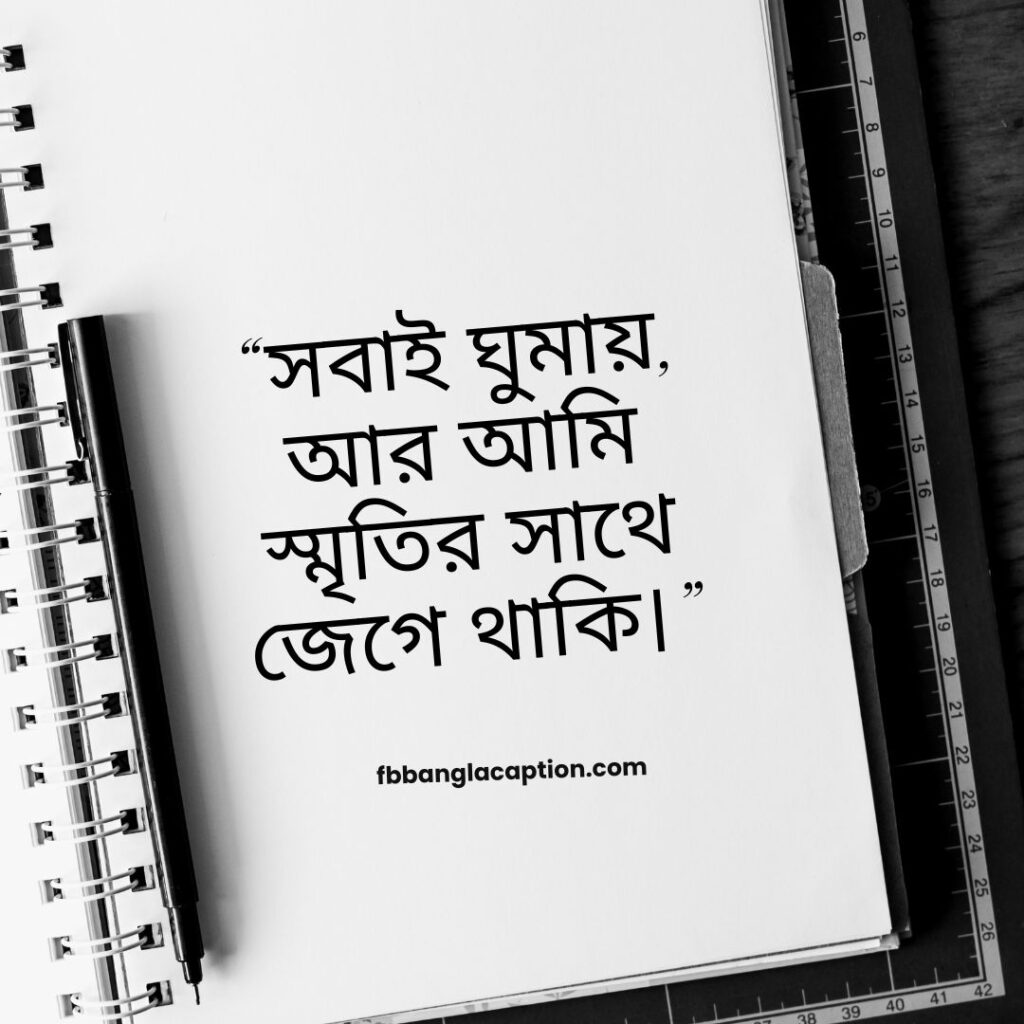 “সবাই ঘুমায়,
আর আমি
স্মৃতির সাথে
জেগে থাকি।”
fbbanglacaption.com
6
7
8
9
10
11
12
13
14
15
16
17
18
19
20
21
22
23
24
25
26
38 39 40 41 42